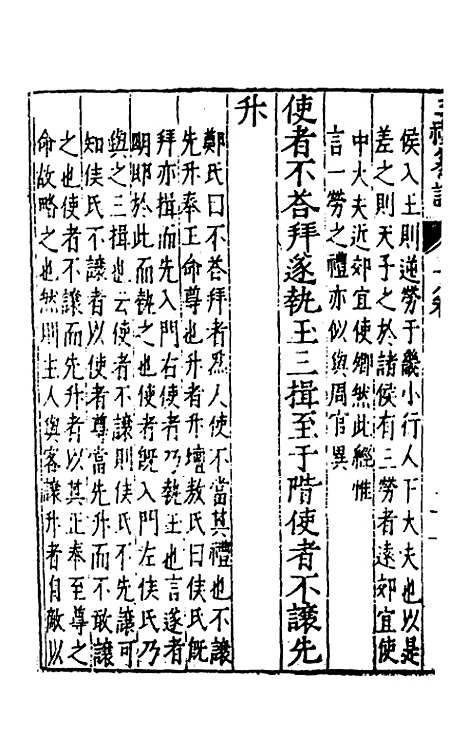 侯入王則逆勞于畿小行人下大夫也以是
差之則天子之於諸侯有三勞者遠郊宜使
中大夫近郊宜使卿然此經惟
言一勞之禮亦似與周官異
使者不荅拜遂執玉三揖至于階使者不讓先
升
鄭氏曰不荅拜者爲人使不當其禮也不讓
先升奉王命尊也升者升壇敖氏曰侯氏旣
拜亦揖而先入門右使者乃執玉也言遂者
明即於此而執之也使者旣入門左侯氏乃
與之三揖也云使者不讓則侯氏不先讓可
知侯氏不讓者以使者尊當先升而不敢讓
之也使者不讓而先升者以其正奉至尊之
命故略之也然則主人與客讓升者自敵以